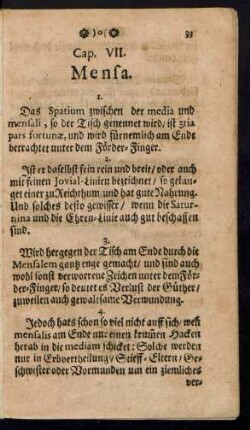 33
Cap. VII.
Mensa.
1.
Das Spatium zwischen der media und
mensali, so der Tisch genennet wird, ist
pars fortunæ, und wird fürnemlich am Ende
betrachtet unter dem Förder-Finger.
2.
Ist er daselbst fein rein und breit/ oder auch
mit feinen Jovial-Linien bezeichnet/ so gelan-
get einer zu Reichthum und hat gute Nahrung.
Und solches desto gewisser/ wenn die Satur-
nina und die Ehren-Linie auch gut beschaffen
sind.
3.
Wird hergegen der Tisch am Ende durch die
Mensalem gantz enge gemacht/ und sind auch
wohl sonst verworrene Zeichen unter dem För-
der-Finger/ so deutet es Verlust der Güther/
zuweilen auch gewaltsame Verwundung.
4.
Jedoch hats schon so viel nicht auff sich/ weñ
mensalis am Ende nur einen krum̃en Hacken
herab in die mediam schicket: Solche werden
nur in Erbvertheilung/ Stieff-Eltern/ Ge-
schwister oder Vormunden um ein ziemliches
ver-